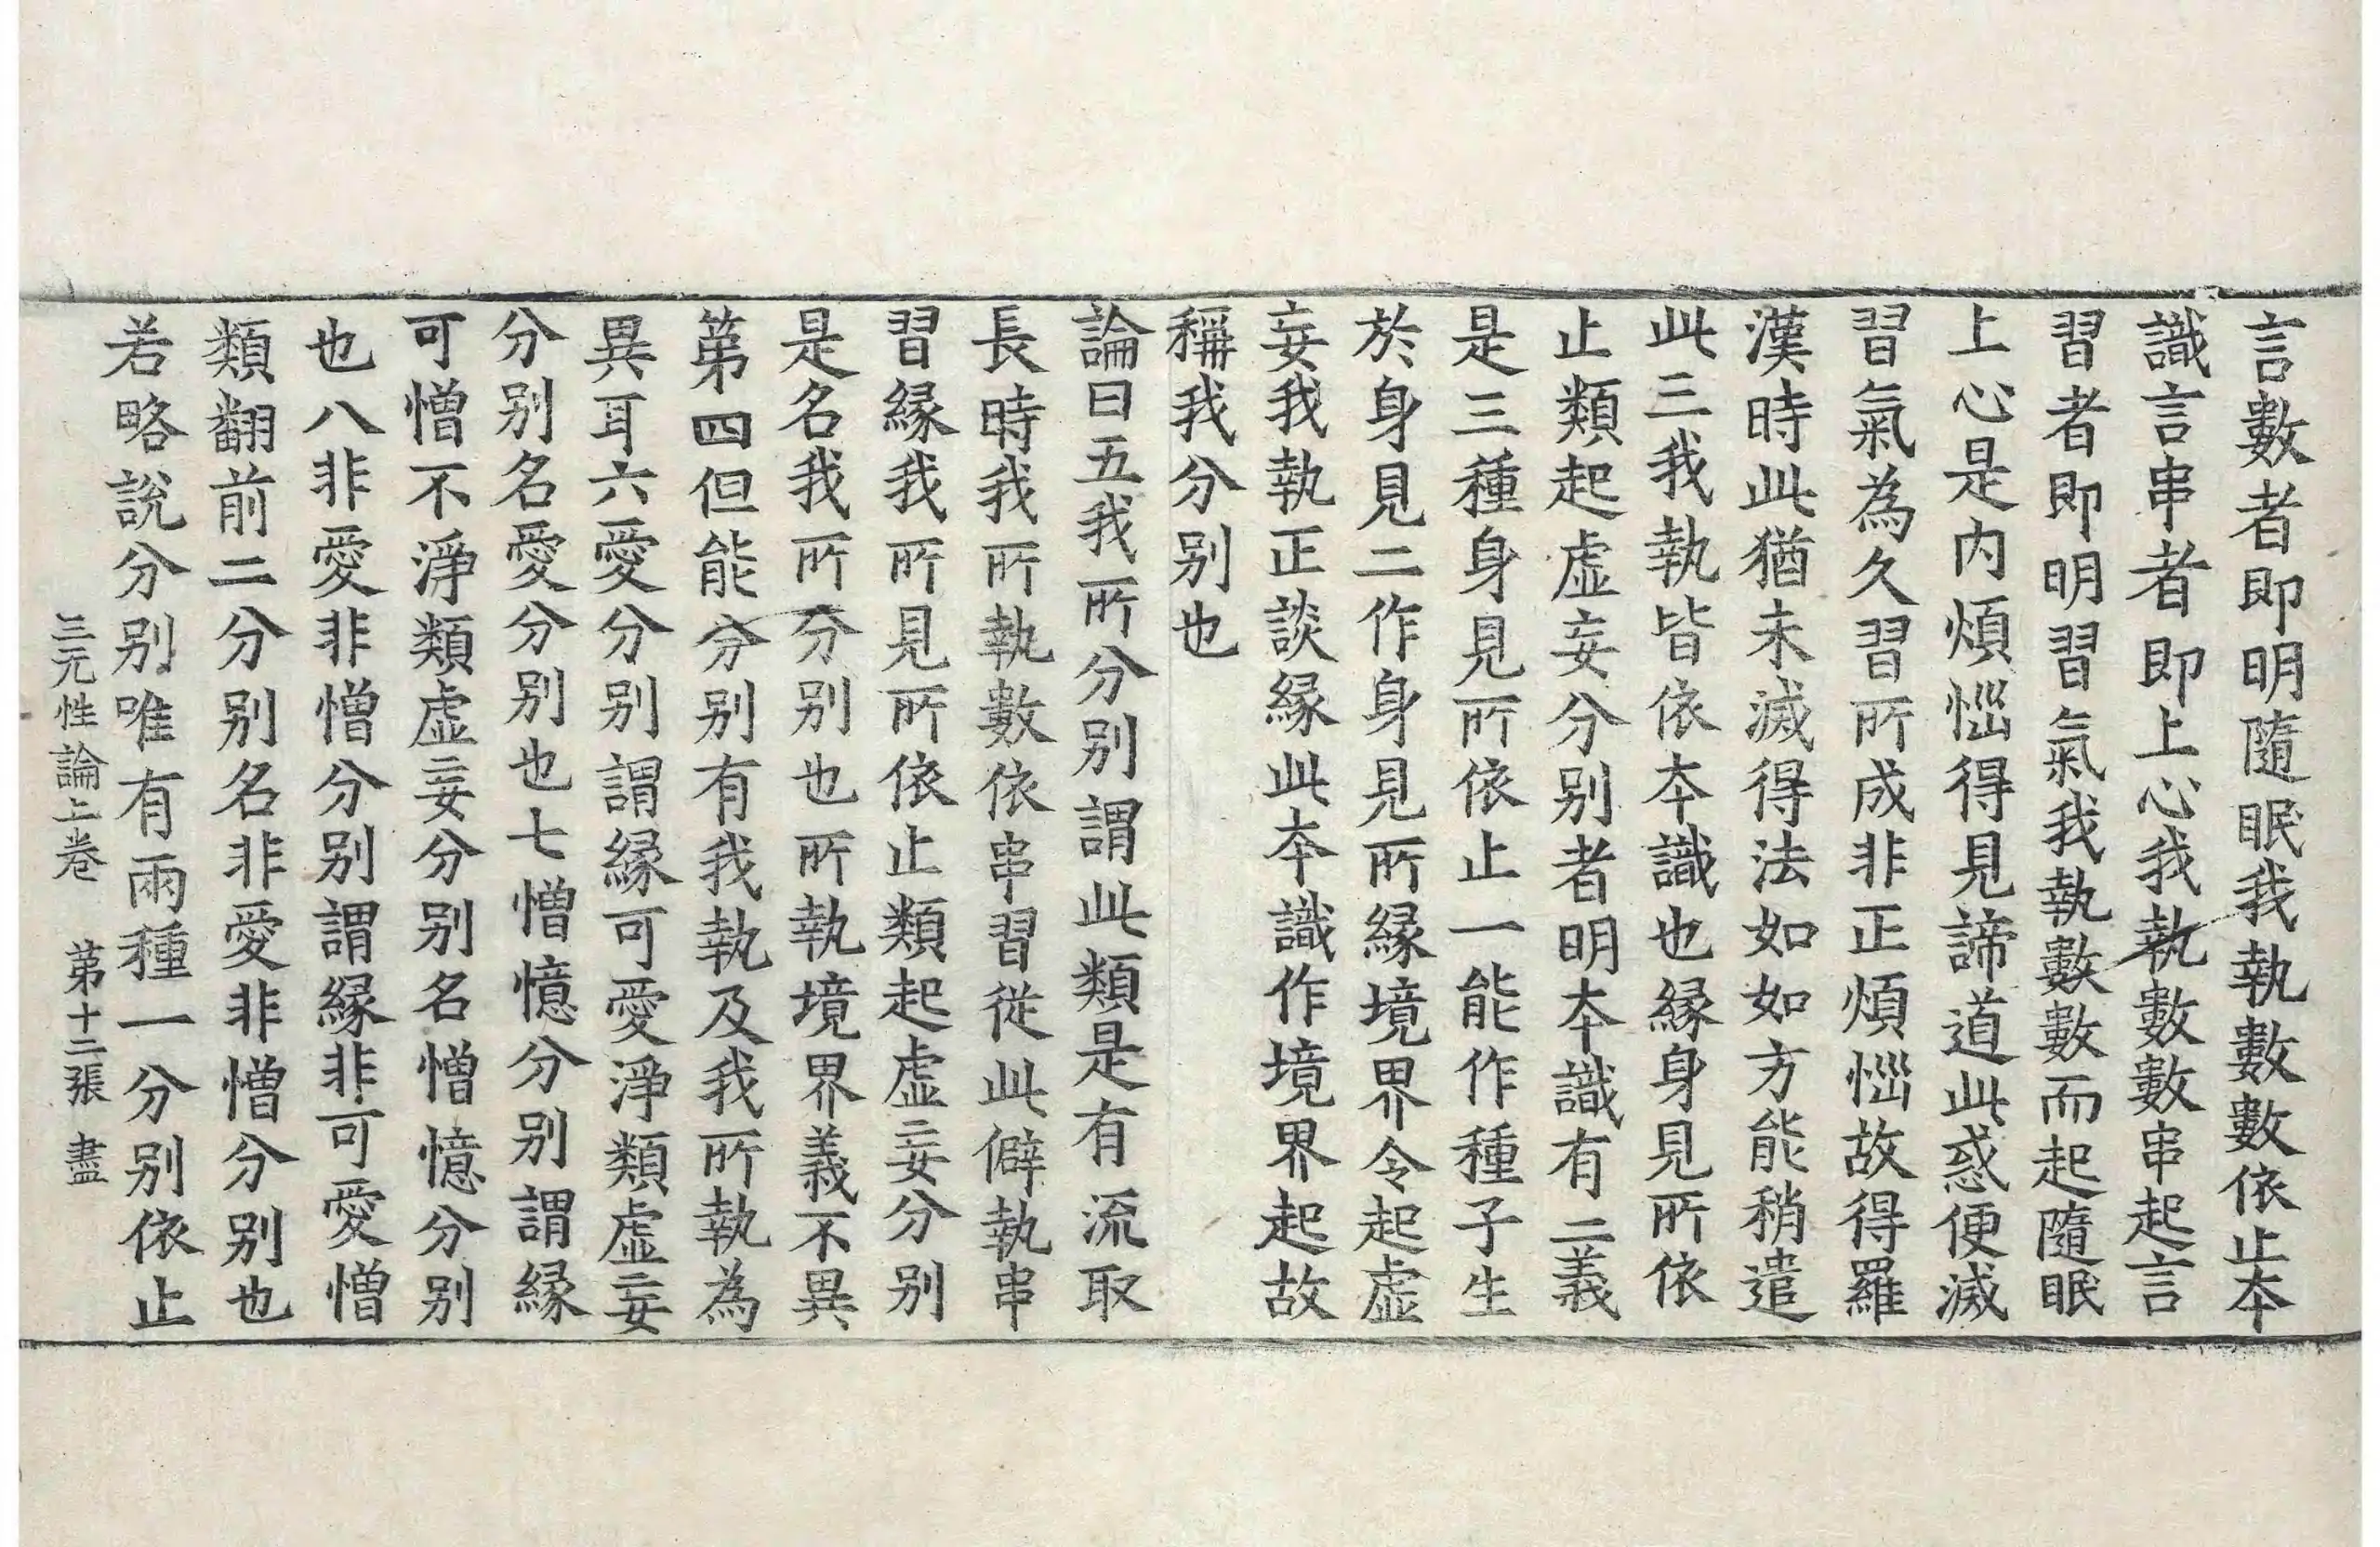 言數者即明隨眠我執數數依止本
識言串者即上心我執數數串起言
習者即明習氣我執數數而起隨眠
上心是内煩惱得見諦道此惑便滅
習氣為久習所成非正煩惱故得羅
漢時此猶未滅得法如如方能稍遣
此三我執皆依本識也緣身見所依
止類起虛妄分别者明本識有二義
是三種身見所依止一能作種子生
於身見二作身見所緣境界令起虛
妄我執正談緣此本識作境界起故
稱我分别也
論曰五我所分别謂此類是有流取
長時我所執數依串習從此僻執串
習緣我所見所依止類起虛妄分别
是名我所分别也所執境界義不異
第四但能分别有我執及我所執為
異耳六愛分别謂緣可愛淨類虛妄
分别名愛分别也七憎憶分别謂緣
可憎不淨類虛妄分别名憎憶分别
也八非愛非憎分别謂緣非可愛憎
類翻前二分别名非愛非憎分别也
若略說分别唯有兩種一分别依止
三无性論上卷　第十二張　盡